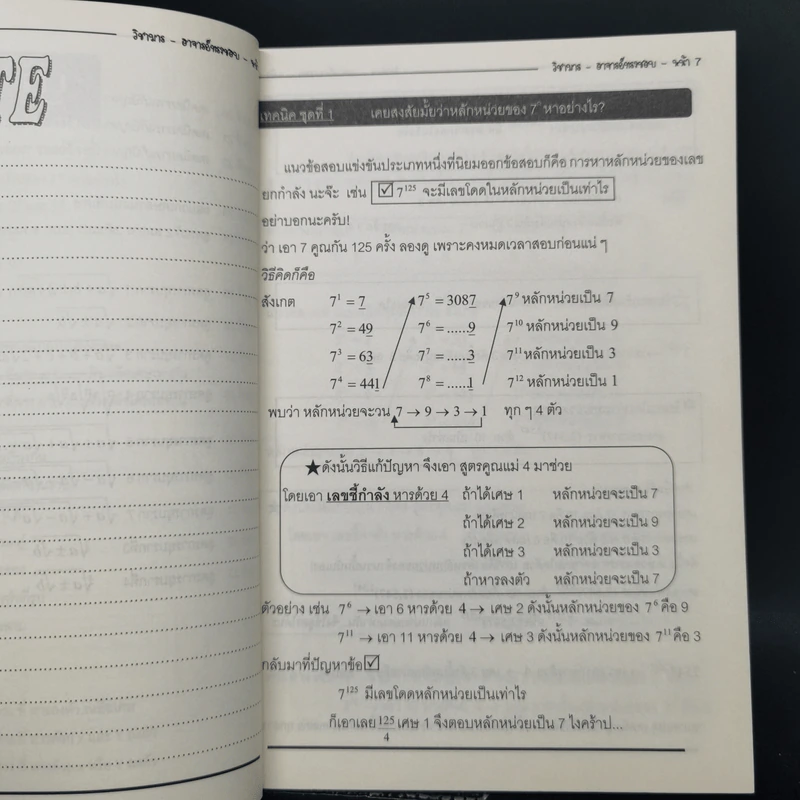 วิชามาร - อาจารย์หมาขอบ -
TE
วิชามาร - อาจารย์หมาขอบ - หน้า 7
เทคนิค ชุดที่ 1 เคยสงสัยมั้ยว่าหลักหน่วยของ 7ⁿ หาอย่างไร?
แนวข้อสอบแข่งขันประเภทหนึ่งที่นิยมออกข้อสอบก็คือ การหาหลักหน่วยของเลข
ยกกำลัง นะจ๊ะ เช่น ☑ 7¹²⁵ จะมีเลขโดดในหลักหน่วยเป็นเท่าไร
อย่าบอกนะครับ!
ว่า เอา 7 คูณกัน 125 ครั้ง ลองดู เพราะคงหมดเวลาสอบก่อนแน่ ๆ
วิธีคิดก็คือ
สังเกต 7¹ = 7 7⁵ = 3087 7⁹ หลักหน่วยเป็น 7
7² = 49 7⁶ = ......9 7¹⁰ หลักหน่วยเป็น 9
7³ = 63 7⁷ = ......3 7¹¹ หลักหน่วยเป็น 3
7⁴ = 441 7⁸ = ......1 7¹² หลักหน่วยเป็น 1
พบว่า หลักหน่วยจะวน 7 → 9 → 3 → 1 ทุก ๆ 4 ตัว
★ดังนั้นวิธีแก้ปัญหา จึงเอา สูตรคูณแม่ 4 มาช่วย
โดยเอา เลขชี้กำลัง หารด้วย 4 ถ้าได้เศษ 1 หลักหน่วยจะเป็น 7
ถ้าได้เศษ 2 หลักหน่วยจะเป็น 9
ถ้าได้เศษ 3 หลักหน่วยจะเป็น 3
ถ้าหารลงตัว หลักหน่วยจะเป็น 7
ตัวอย่าง เช่น 7⁶ → เอา 6 หารด้วย 4 → เศษ 2 ดังนั้นหลักหน่วยของ 7⁶ คือ 9
7¹¹ → เอา 11 หารด้วย 4 → เศษ 3 ดังนั้นหลักหน่วยของ 7¹¹ คือ 3
กลับมาที่ปัญหาข้อ☑
7¹²⁵ มีเลขโดดหลักหน่วยเป็นเท่าไร
ก็เอาเลย 125/4 เศษ 1 จึงตอบหลักหน่วยเป็น 7 ไงคร้าป...